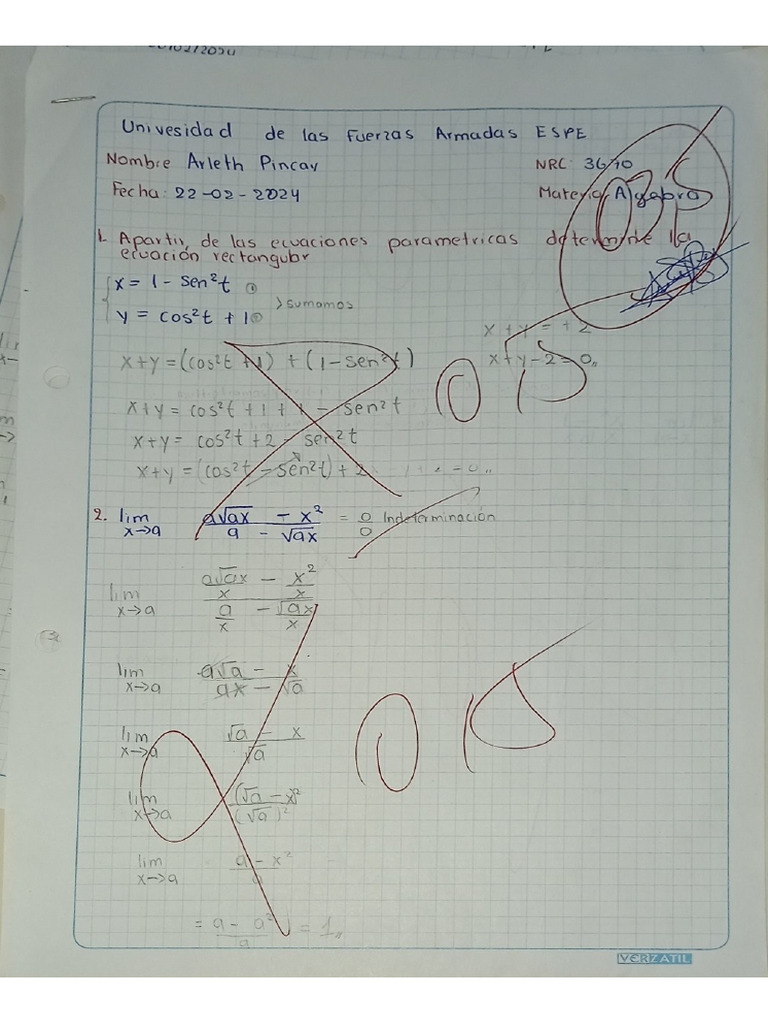 Univesidad de las Fuerzas Armadas ESPE
Nombre Arleth Pincay NRC: 3670
Fecha: 22-02-2024 Materia Algebra
1. Apartir de las ecuaciones parametricas determine la
ecuación rectangular
x = 1 - sen²t ①
y = cos²t + 1 ② >sumamos
x + y = + 2
x+y = (cos²t + 1) + (1 - sen²t) x+y-2=0,,
x+y = cos²t + 1 + 1 - sen²t
x+y = cos²t + 2 - sen²t
x+y = (cos²t - sen²t) + 2
2. lim x→a (a√ax - x²)/(a - √ax) = 0/0 Indeterminación
lim x→a (a√ax/x - x²/x)/(a/x - √ax/x)
lim x→a (a√a - x)/(ax - √a)
lim x→a (√a - x)/√a
lim x→a (√a - x)²/(√a)²
lim x→a (a - x²)/a
= (a - a²)/a = 1,,
VERZATIL